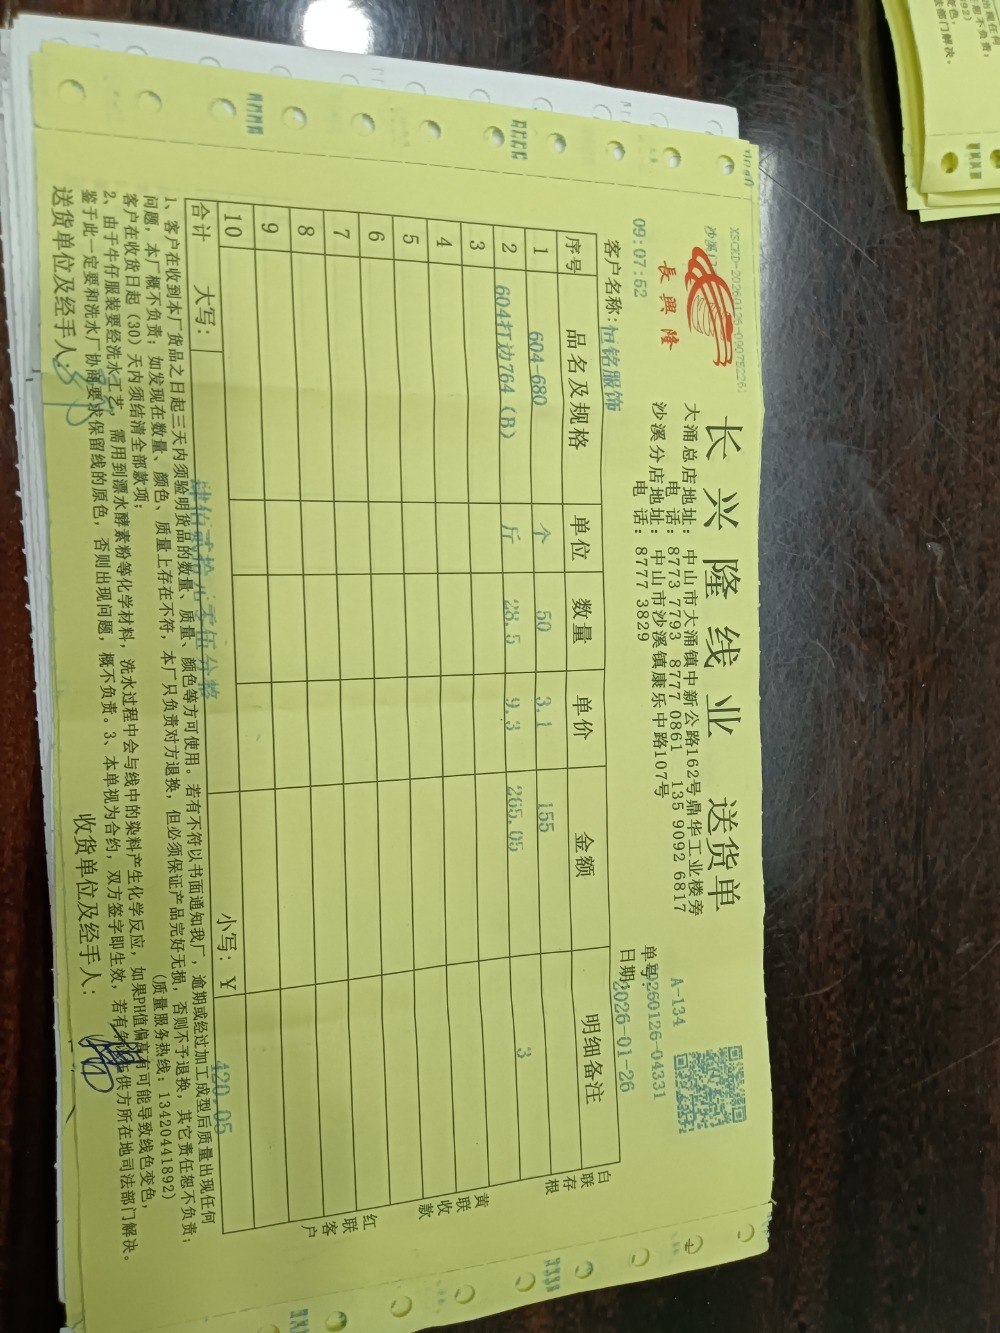 长兴隆线业 送货单
長興隆
大涌总店地址：中山市大涌镇中新公路162号鼎华工业楼旁
电 话：8773 7793 8777 0861 135 9092 6817
沙溪分店地址：中山市沙溪镇康乐中路107号
电 话：8777 3829
A-134
单号：20260126-04331
日期：2026-01-26
09:07:52
客户名称：恒铭服饰
序号 品名及规格 单位 数量 单价 金额 明细备注
1 604-680 个 50 3.1 155
2 604打边764（B） 斤 28.5 9.3 265.05 3
3
4
5
6
7
8
9
10
合计 大写：肆佰贰拾元零伍分整 小写：￥ 420.05
白联存根
黄联收款
红联客户
1、客户在收到本厂货品之日起三天内须验明货品的数量、质量、颜色等方可使用。若有不符以书面通知我厂，逾期或经过加工成型后质量出现任何
问题，本厂概不负责；如发现在数量、颜色、质量上存在不符，本厂只负责对方退换，但必须保证产品完好无损，否则不予退换，其它责任恕不负责；
客户在收货日起（30）天内须结清全部款项； （质量服务热线：13420441892）
2、由于牛仔服装要经洗水工艺，需用到漂水酵素粉等化学材料，洗水过程中会与线中的染料产生化学反应，如果PH值偏高有可能导致线色变色，
鉴于此一定要和洗水厂协商要求保留线的原色，否则出现问题，概不负责。3、本单视为合约，双方签字即生效，若有争 供方所在地司法部门解决。
送货单位及经手人： 收货单位及经手人：